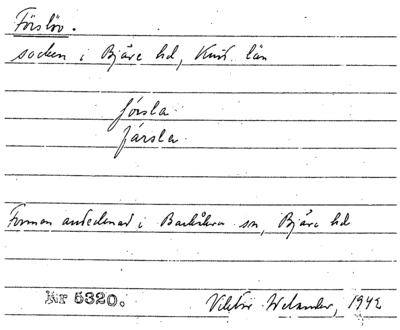 Förslöv.
socken i Bjäre hd, Krist. län
försla
färsla
Formen antecknad i Barkåkra sn, Bjäre hd
Nr 5320.
Viktor Welander, 1942